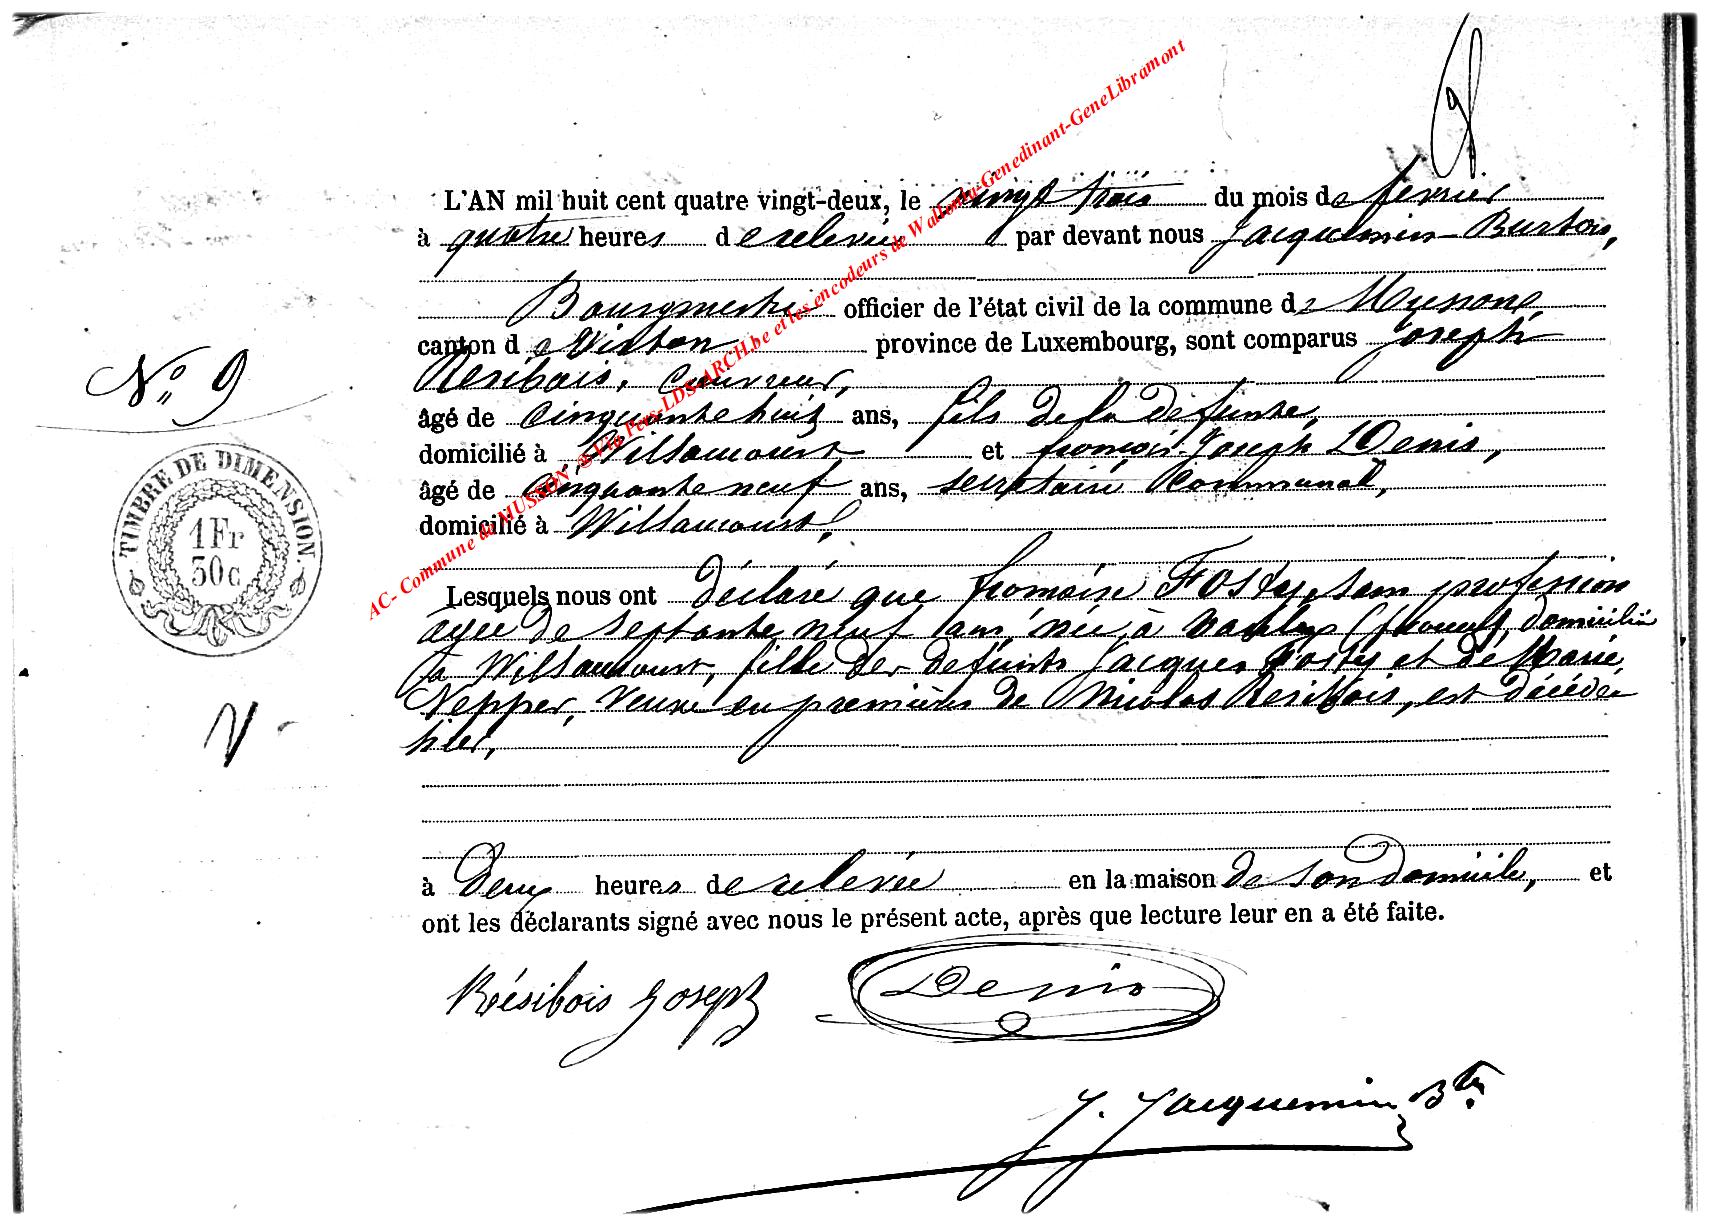 L'AN mil huit cent quatre vingt-deux, le vingt trois du mois de fevrier
à quatre heures de relevée par devant nous Jacquemin-Burton,
Bourgmestre officier de l'état civil de la commune de Musson,
canton de Virton province de Luxembourg, sont comparus Joseph
Resibois, couvreur,
âgé de cinquante huit ans, fils de la defunte,
domicilié à Willancourt, et françois-Joseph Denis,
âgé de cinquante neuf ans, secretaire communal,
domicilié à Willancourt,
Lesquels nous ont déclaré que Fosty, sans profession
agée de septante neuf ans, née à domiciliée
à Willancourt, fille des defunts Jacques Fosty et de Marie
Nepper, veuve en premières de Nicolas Resibois, est décédée
hier,
à Deux heures de relevée en la maison de son domicile, et
ont les déclarants signé avec nous le présent acte, après que lecture leur en a été faite.
Résibois Joseph Denis
J. Jacquemin Btn
N° 9
TIMBRE DE DIMENSION.
1 Fr
30 c
V
AC- Commune de MUSSON @ Via Pers-LDS-ARCH.be et les encodeurs de Wallonia-Genedinant-GeneLibramont